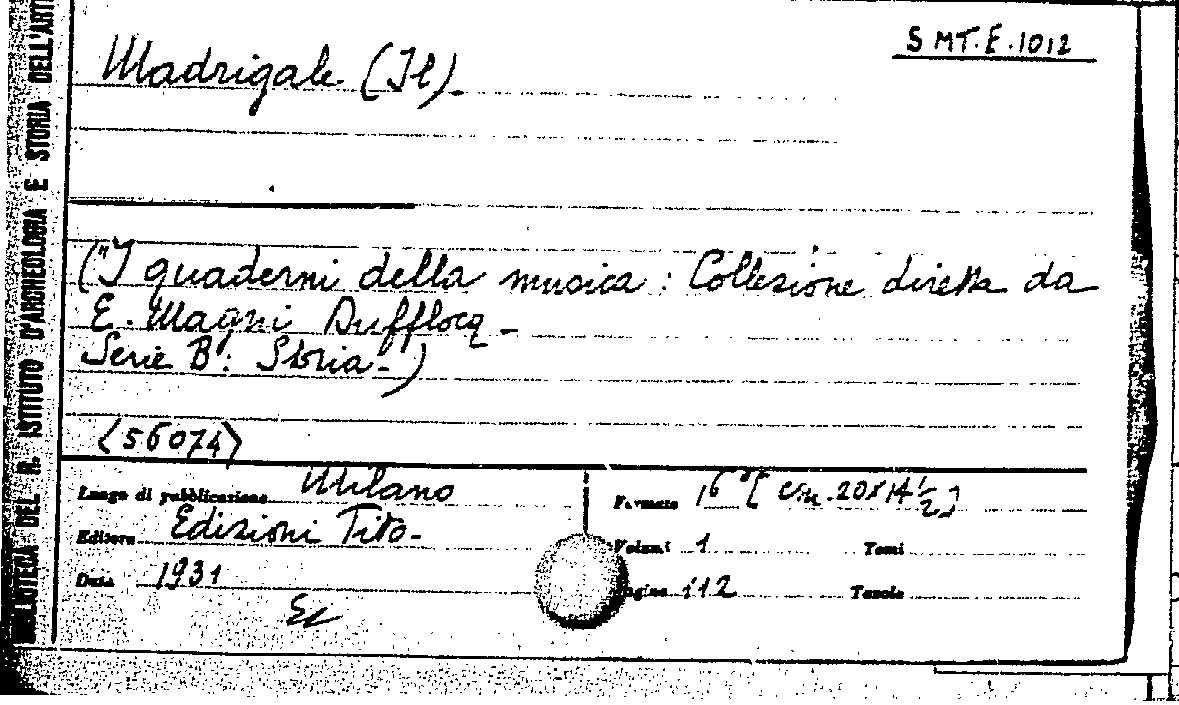 S MT. E. 1012
Madrigale (Il).
("I quaderni della musica: Collezione diretta da
E. Magni Dufflocq -
Serie B: Storia.)
<56074>
Luogo di pubblicazione Milano
Formato 16° [cm. 20x14 1/2]
Editore Edizioni Tito.
Volumi 1 Tomi
Data 1931
Pagine 112 Tavole
BIBLIOTECA DEL R. ISTITUTO D'ARCHEOLOGIA E STORIA DELL'ARTE